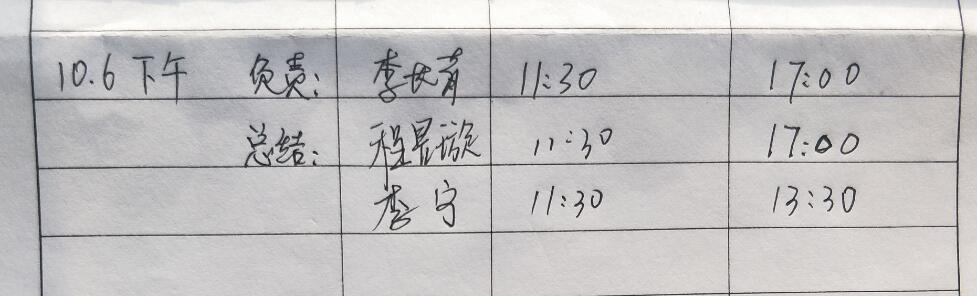 10.6 下午 负责: 李长青 11:30 17:00
总结: 程昱璇 11:30 17:00
李宁 11:30 13:30